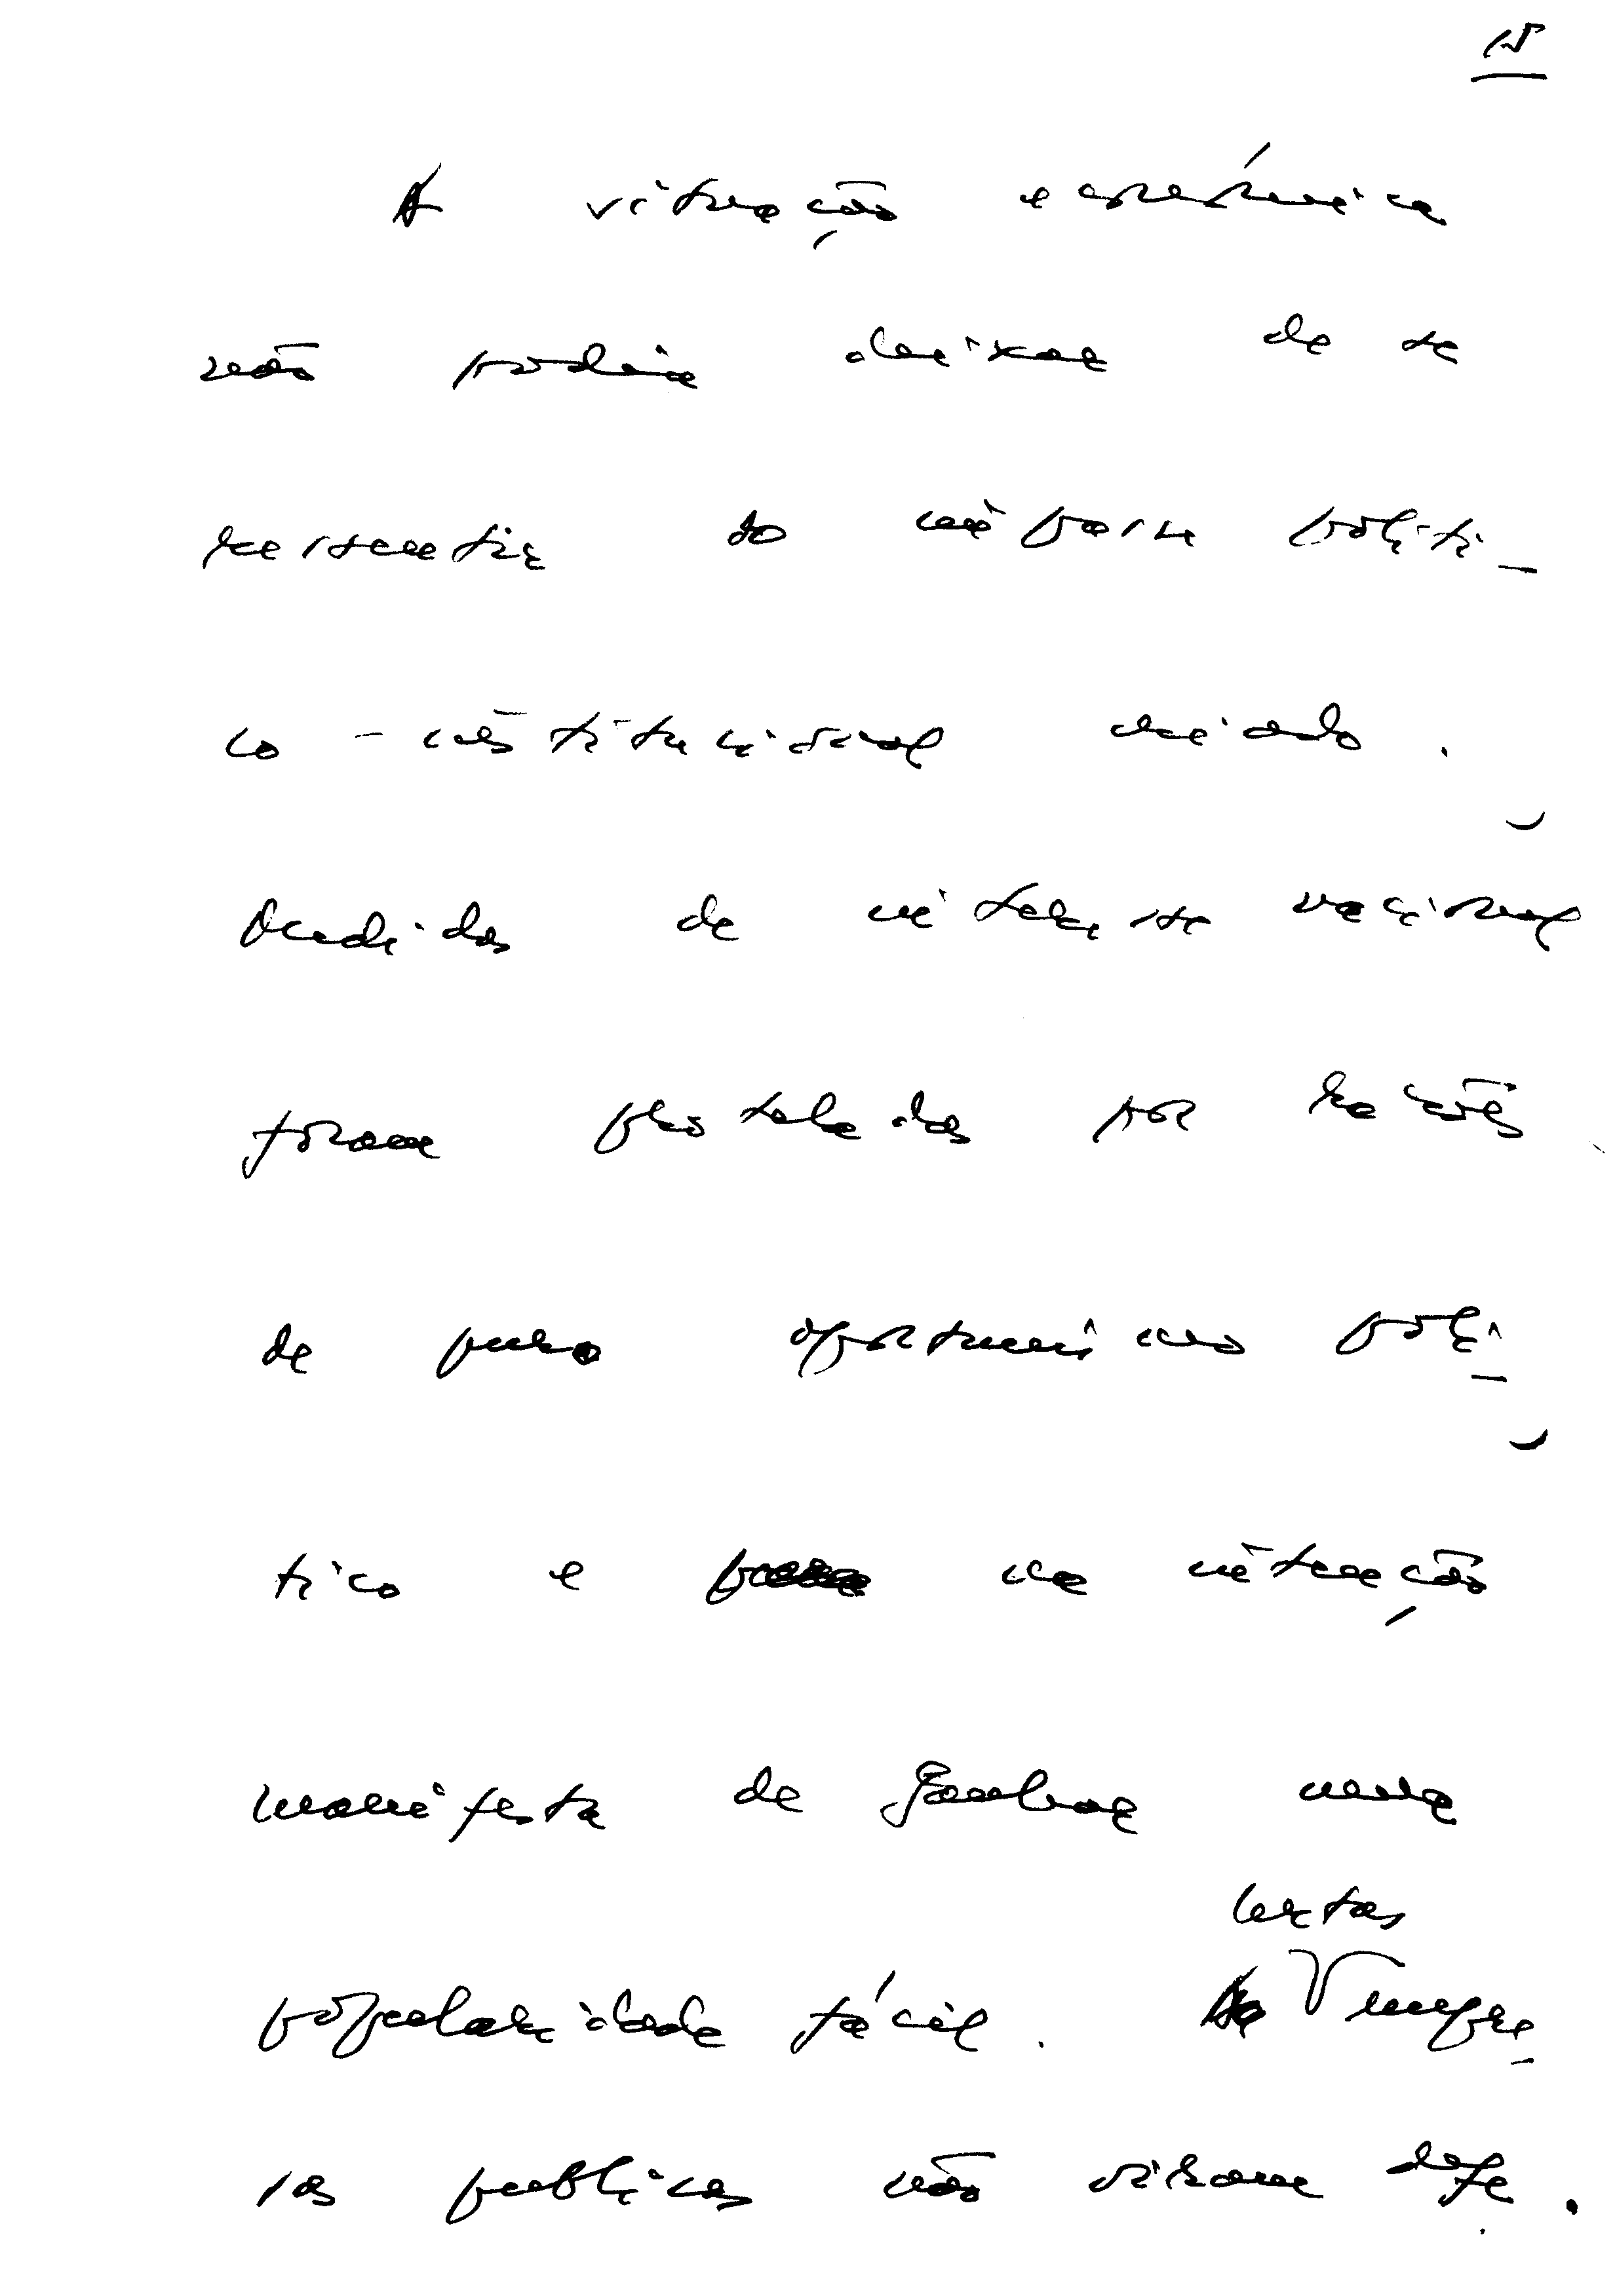 15
A situação económica
não podia deixar de se
ressentir do impasse políti-
co-institucional criado.
Medidas de interesse nacional
foram proteladas por razões
de puro oportunismo polí-
tico e na intenção
manifesta de ganhar uma
certas
popularidade fácil. Empre-
sas públicas não viram defe.